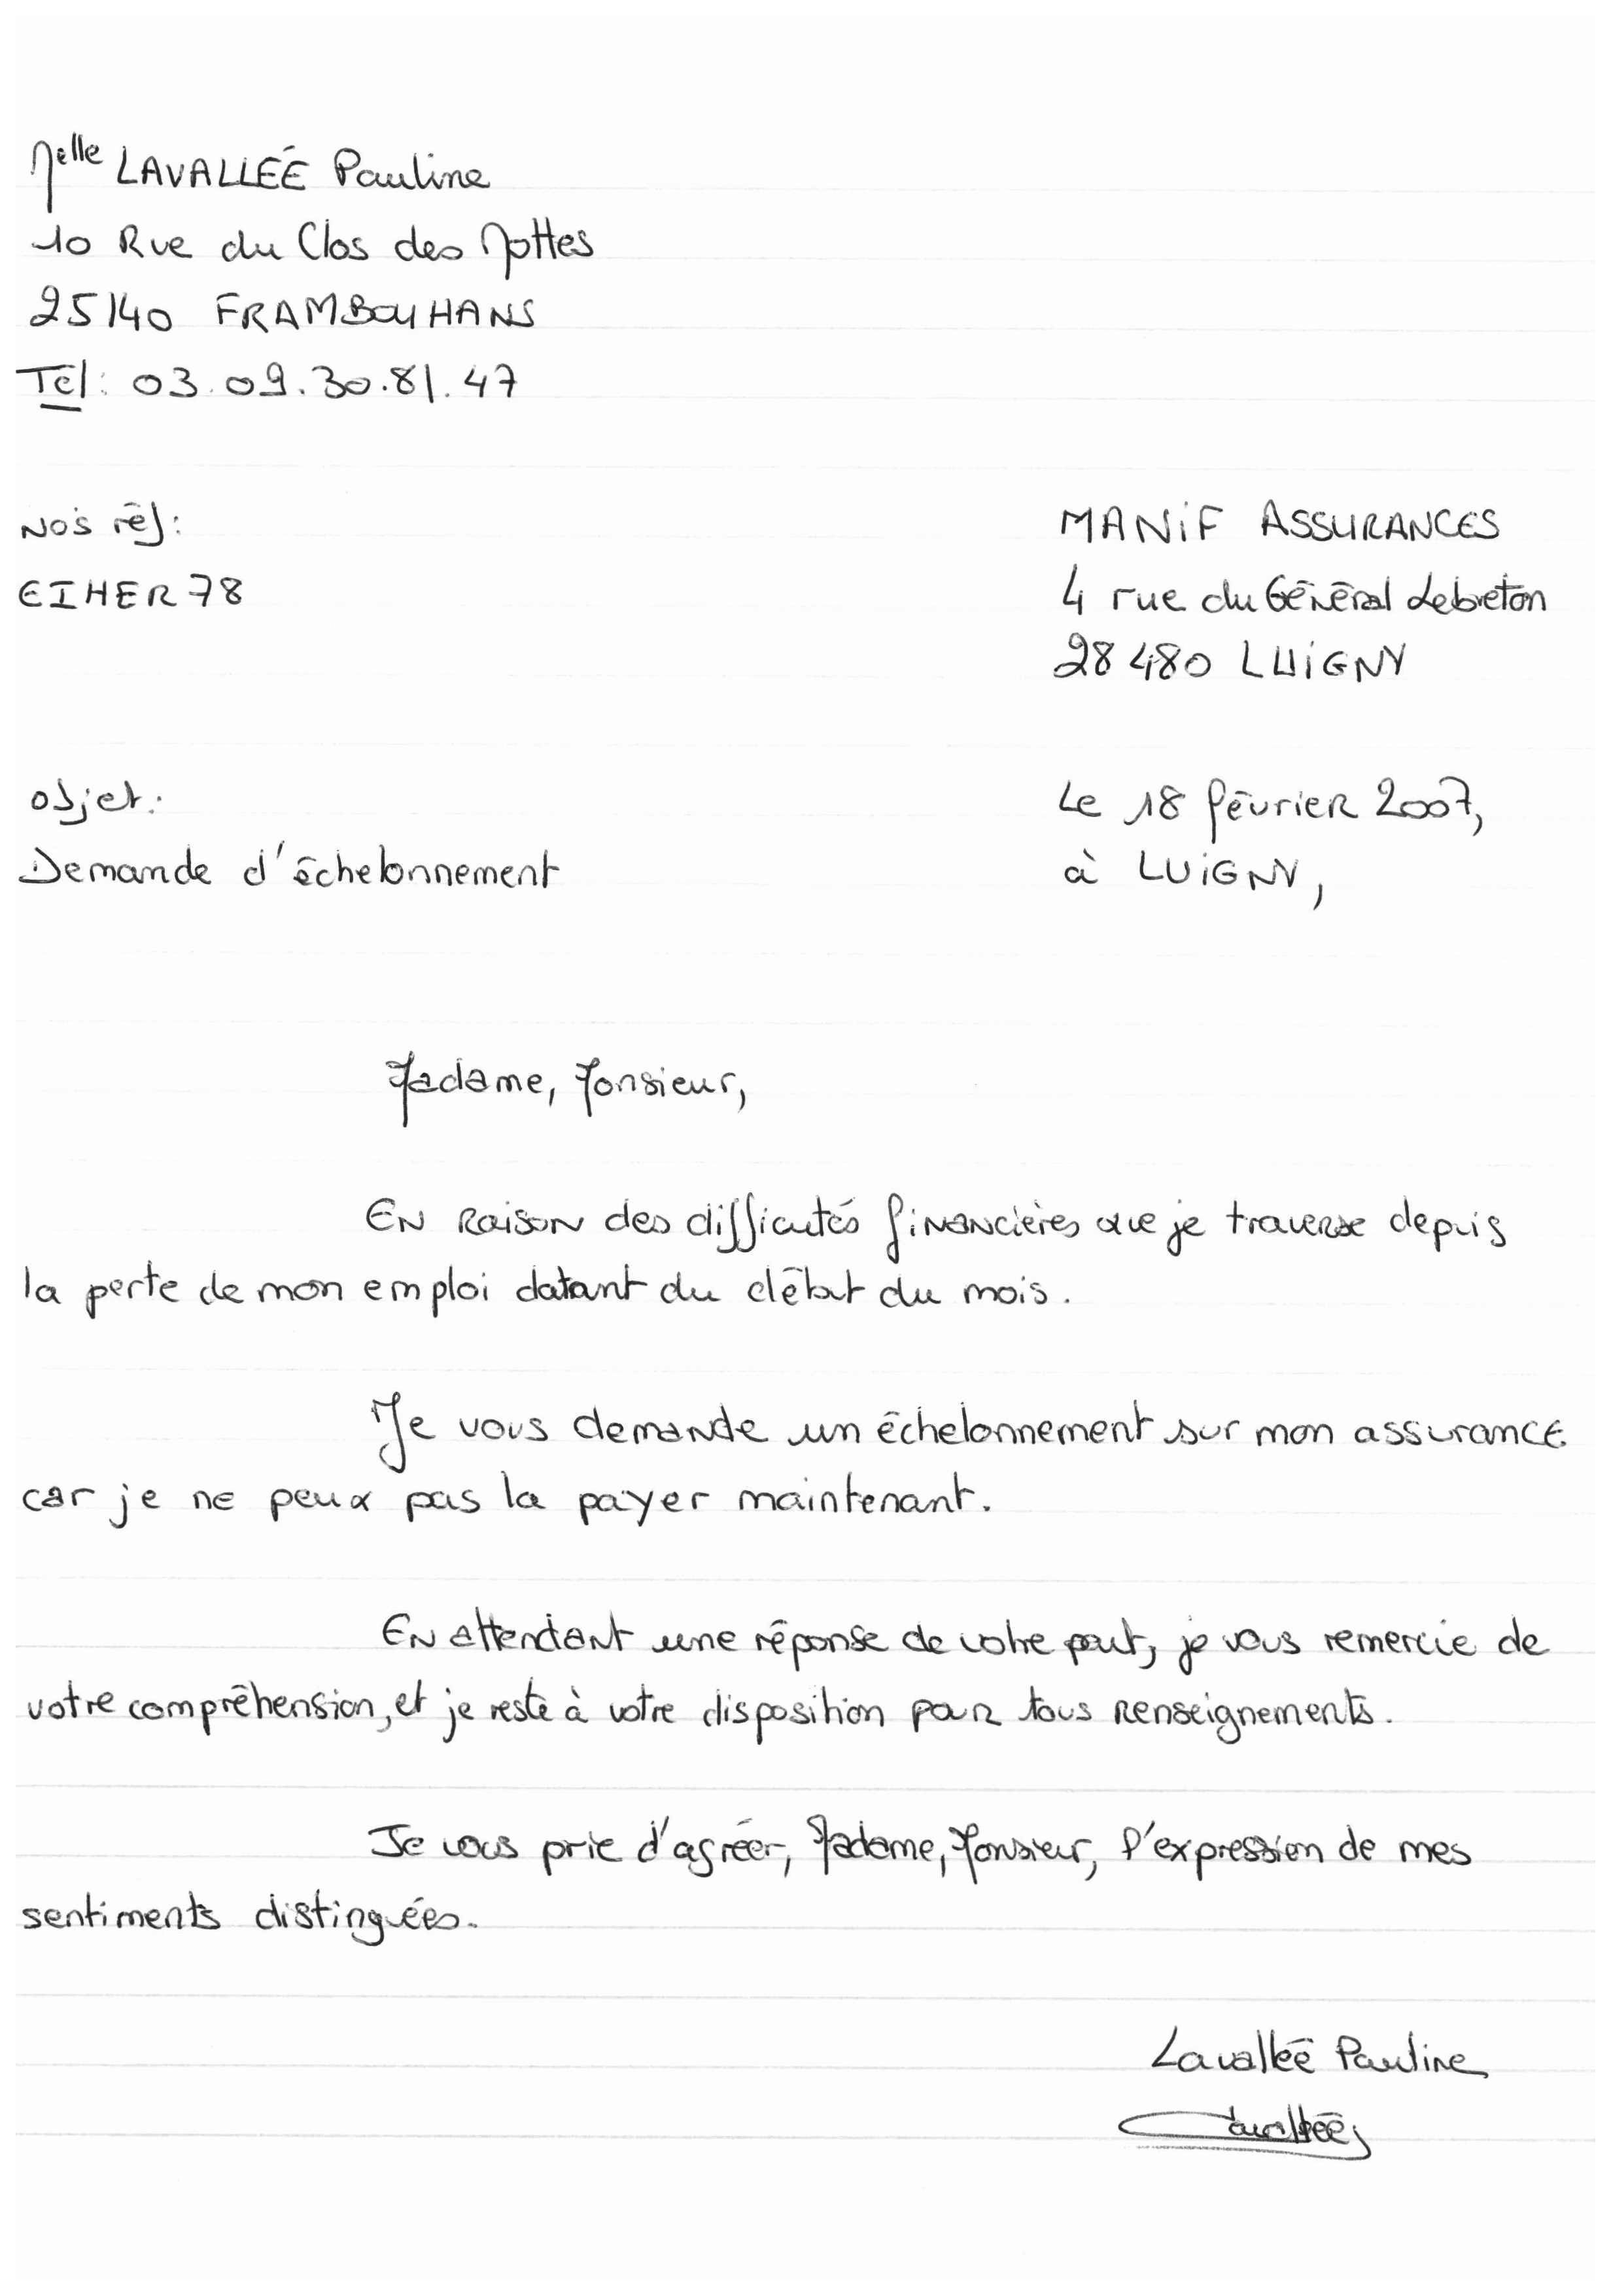 Melle LAVALLÉE Pauline
10 Rue du Clos des Mottes
25140 FRAMBOUHANS
Tél : 03.09.30.81.47
Nos réf :
EIHER78
MANIF ASSURANCES
4 rue du Général Lebreton
28480 LUIGNY
objet :
Demande d'échelonnement
Le 18 février 2007,
à LUIGNY,
Madame, Monsieur,
En raison des difficutés financières que je traverse depuis
la perte de mon emploi datant du début du mois.
Je vous demande un échelonnement sur mon assurance
car je ne peux pas la payer maintenant.
En attendant une réponse de votre part, je vous remercie de
votre compréhension, et je reste à votre disposition pour tous renseignements.
Je vous prie d'agréer, Madame, Monsieur, l'expression de mes
sentiments distinguées.
Lavallée Pauline
Lavallée